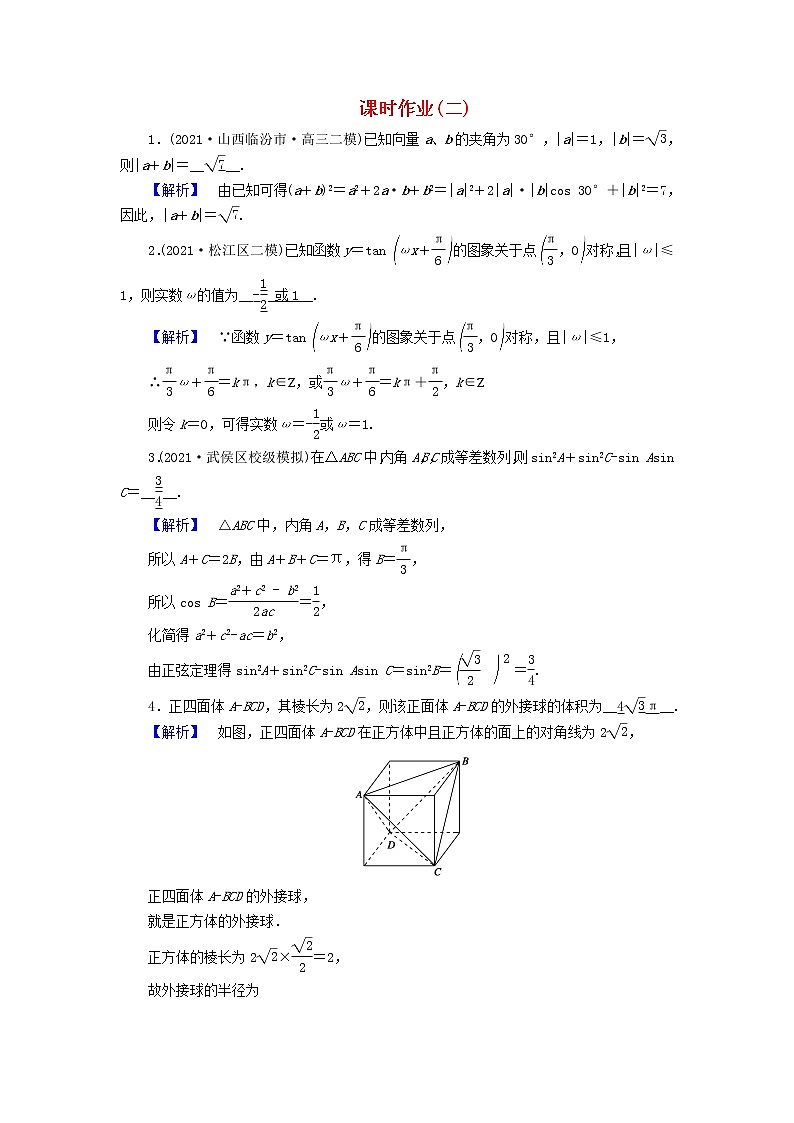 课时作业(二)
1．(2021·山西临汾市·高三二模)已知向量 a、b的夹角为30°,|a|=1,|b|=√3,
则|a+b|=__√7__.
【解析】 由已知可得(a+b)2=a2+2a·b+b2=|a|2+2|a|·|b|cos 30°+|b|2=7,
因此,|a+b|=√7.
2.(2021·松江区二模)已知函数y=tan (ωx+π/6)的图象关于点(π/3,0)对称,且|ω|≤
1,则实数ω的值为__-1/2 或1__.
【解析】 ∵函数y=tan (ωx+π/6)的图象关于点(π/3,0)对称,且|ω|≤1,
∴π/3ω+π/6=kπ,k∈Z,或π/3ω+π/6=kπ+π/2,k∈Z
则令k=0,可得实数ω=-1/2或ω=1.
3.(2021·武侯区校级模拟)在△ABC中,内角A,B,C成等差数列,则sin2A+sin2C-sin Asin
C=__3/4__.
【解析】 △ABC中,内角A,B,C成等差数列,
所以A+C=2B,由A+B+C=π,得B=π/3,
所以cos B=a2+c2－b2/2ac=1/2,
化简得a2+c2-ac=b2,
由正弦定理得sin2A+sin2C-sin Asin C=sin2B=(√3/2)2=3/4.
4．正四面体A-BCD,其棱长为2√2,则该正面体A-BCD的外接球的体积为__4√3π__.
【解析】 如图,正四面体A-BCD在正方体中且正方体的面上的对角线为2√2,
B
A
D
C
正四面体A-BCD的外接球,
就是正方体的外接球.
正方体的棱长为2√2×√2/2=2,
故外接球的半径为